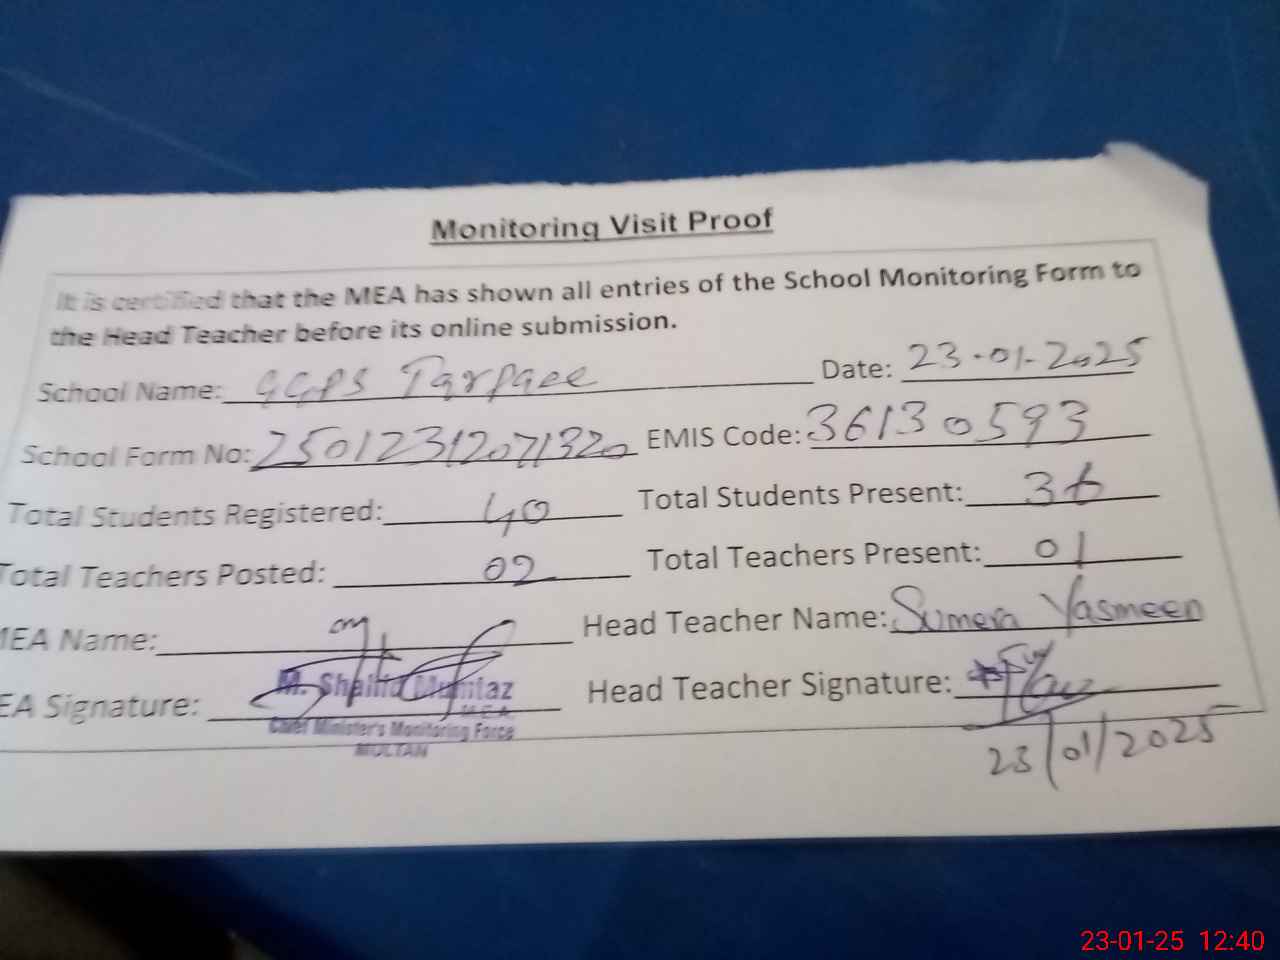 Monitoring Visit Proof
It is certified that the MEA has shown all entries of the School Monitoring Form to
the Head Teacher before its online submission.
School Name: GGPS Tarpaee Date: 23-01-2025
School Form No: 25012312071320 EMIS Code: 36130593
Total Students Registered: 40 Total Students Present: 36
Total Teachers Posted: 02 Total Teachers Present: 01
MEA Name: Head Teacher Name: Sumera Yasmeen
EA Signature: Head Teacher Signature:
M. Shahid Mumtaz
M.E.A
Chief Minister's Monitoring Force
MULTAN
23/01/2025
23-01-25 12:40